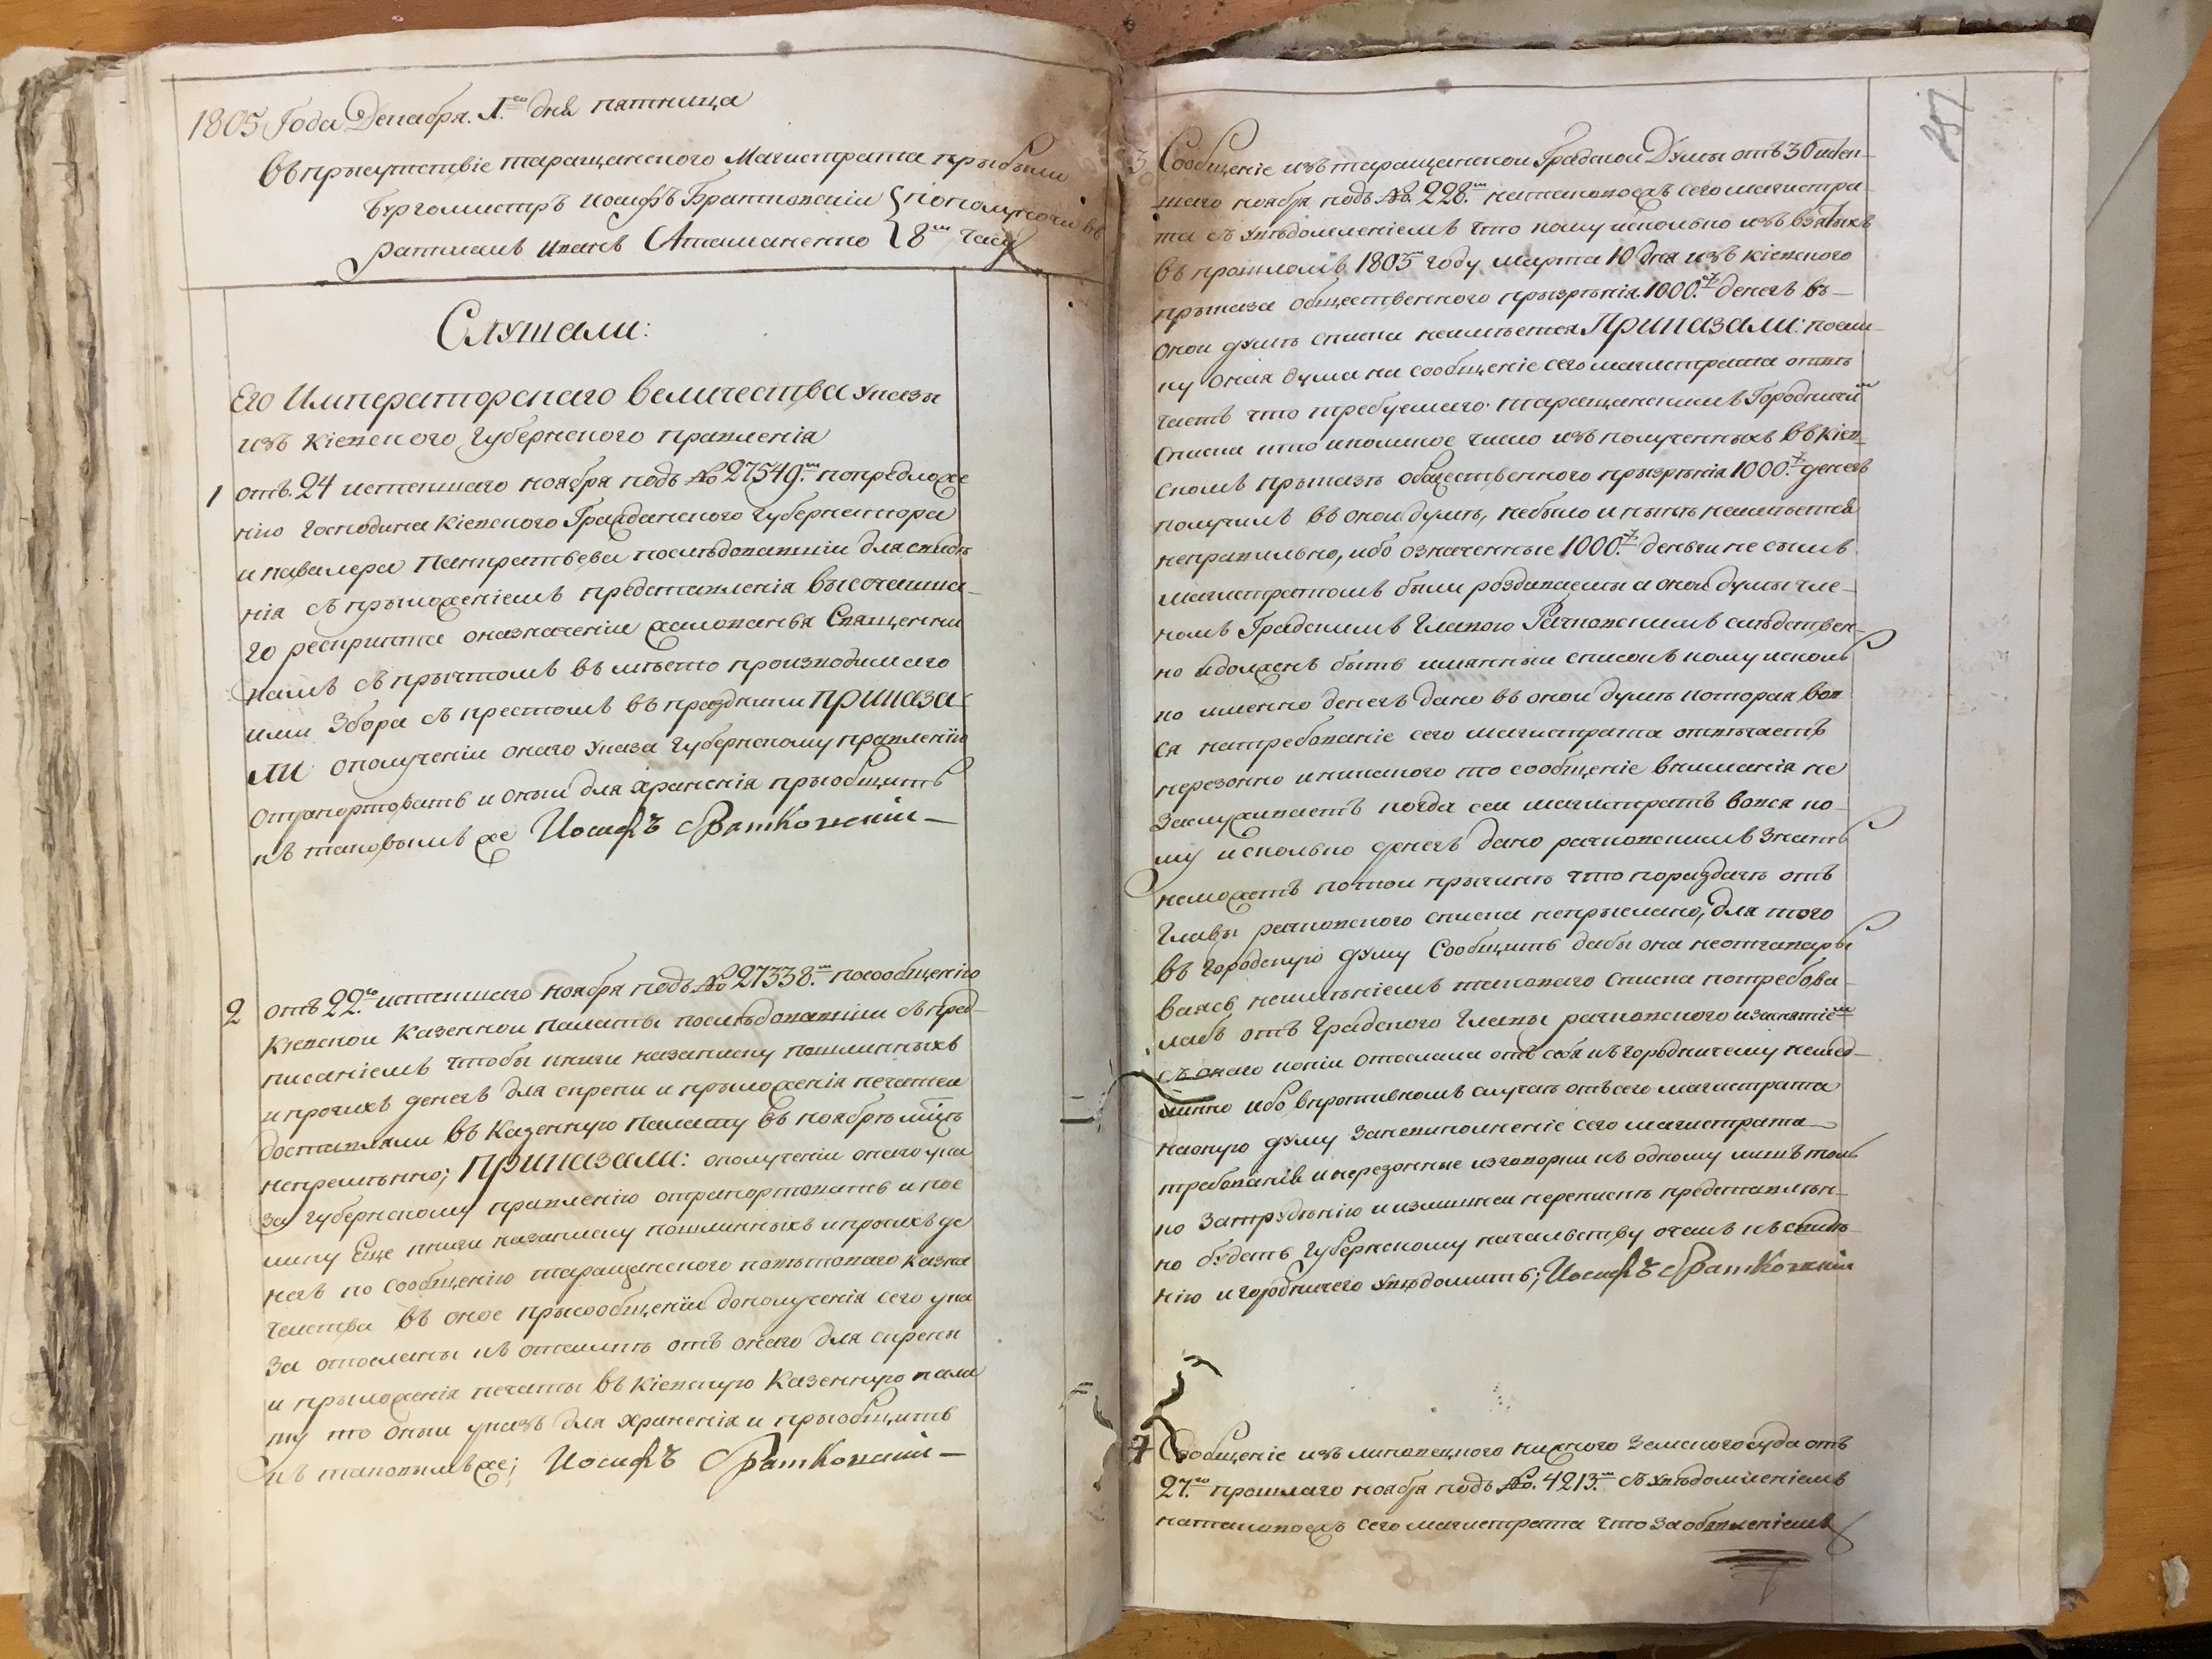 1805 Года Декабря. 1.го дня пятница
въ прысутствіе таращанского Магистрата прыбыли
Бургомистръ Иосифъ Братковскій { пополуночи въ
ратманъ Иванъ Атаманенко { 8м часу
Слушали:
Его Императорскаго Величества Указы
изъ Кіевского Губернского правленія
1 отъ. 24 истекшаго ноября подъ № 27549.м попредложе
нію Господина Кіевского Гражданского Губернатора
и кавалера Панкратьева последовавшій для сведе
нія съ прыложеніемъ представленія высочайша-
го рескрипта оназначеніи жалованья Священни
камъ съ прычтомъ въ место производимаго
ими Збора съ крестомъ въ праздники приказа-
ли ополученіи онаго Указа Губернскому правленію
отрапортовать и оный для храненія прыобщить
къ таковымъ же Иосифъ Братковскій
2 отъ 22.го истекшаго ноября подъ № 27338.м посообщенію
Кіевской Казенной Палаты последовавшій съ пред-
писаніемъ чтобы книги назаписку пошлинныхъ
и прочихъ денегъ для скрепи и прыложенія печатей
доставляли въ Казенную Палату въ ноябре мцъ
непременно; приказали: ополученіи онаго ука
за Губернскому правленію отрапортовать и пое
лику Еще книги назаписку пошлинныхъ и прочихъ де
негъ по сообщенію таращанского поветоваго казна
чейства въ оное прысообщеніи дополученія сего ука
за отосланы къ отсылке отъ онаго для скрепы
и прыложенія печаты въ Кіевскую Казенную пала
ту то оный указъ для храненія и прыобщить
къ таковымъ же; Иосифъ Братковскій
3 Сообщеніе изъ таращанской Градской Думы отъ 30 истек-
шаго ноября подъ №. 228.м натаковожъ сего магистра-
та съ Уведомленіемъ что кому исколько изъ взятыхъ
въ прошломъ 1803м году марта 10 дня изъ Кіевского
прыказа общественного прызренія 1000.р денегъ въ
оной думе списка неимеется Приказали: поели-
ку оная дума на сообщеніе сего магистрата отве
чаетъ что требуемаго таращанскимъ Городничим
списка кто иколикое число изъ полученныхъ въ Кіев
скомъ прыказе общественного прызренія 1000.р денегъ
получилъ въ оной думе, небыло и ныне неимеется
неправильно, ибо означенные 1000.р деньги не симъ
магистратомъ были роздаваемы а оной думы чле-
номъ Градскимъ Главою Рачковскимъ следствен-
но идолженъ быть именный списокъ кому исколь
ко именно денегъ дано въ оной думе которая вов
ся натребованіе сего магистрата отвечаетъ
нерезонно иникакого то сообщеніе вниманія не
Заслуживаетъ когда сей магистратъ вовся ко-
му исколько денегъ дано рачковскимъ знать
неможетъ потой прычине что пораздаче отъ
Главы рачковского списка непрыслано, для того
въ городскую думу Сообщить дабы она неотгавары
ваясь неименіемъ таковаго списка потребова-
лабъ отъ Градского Главы рачковского изснятіем
съ онаго копіи отослала отъ себя къ городничему немед-
ленно ибо впротивномъ случае отъ сего магистрата
наоную думу занеисполненіе сего магистрата
требованія и нерезонные изговорки къ одному лишъ толь
ко затруднію и излишней переписке представлен-
но будетъ Губернскому начальству очемъ къ сведе-
нію и городничего Уведомить; Иосифъ Братковскій
4 Сообщеніе изъ липовецкого нижного Земского суда отъ
27.го прошлаго ноября подъ №. 4213.м съ Уведомленіемъ
натаковожъ сего магистрата что заобявленіемъ